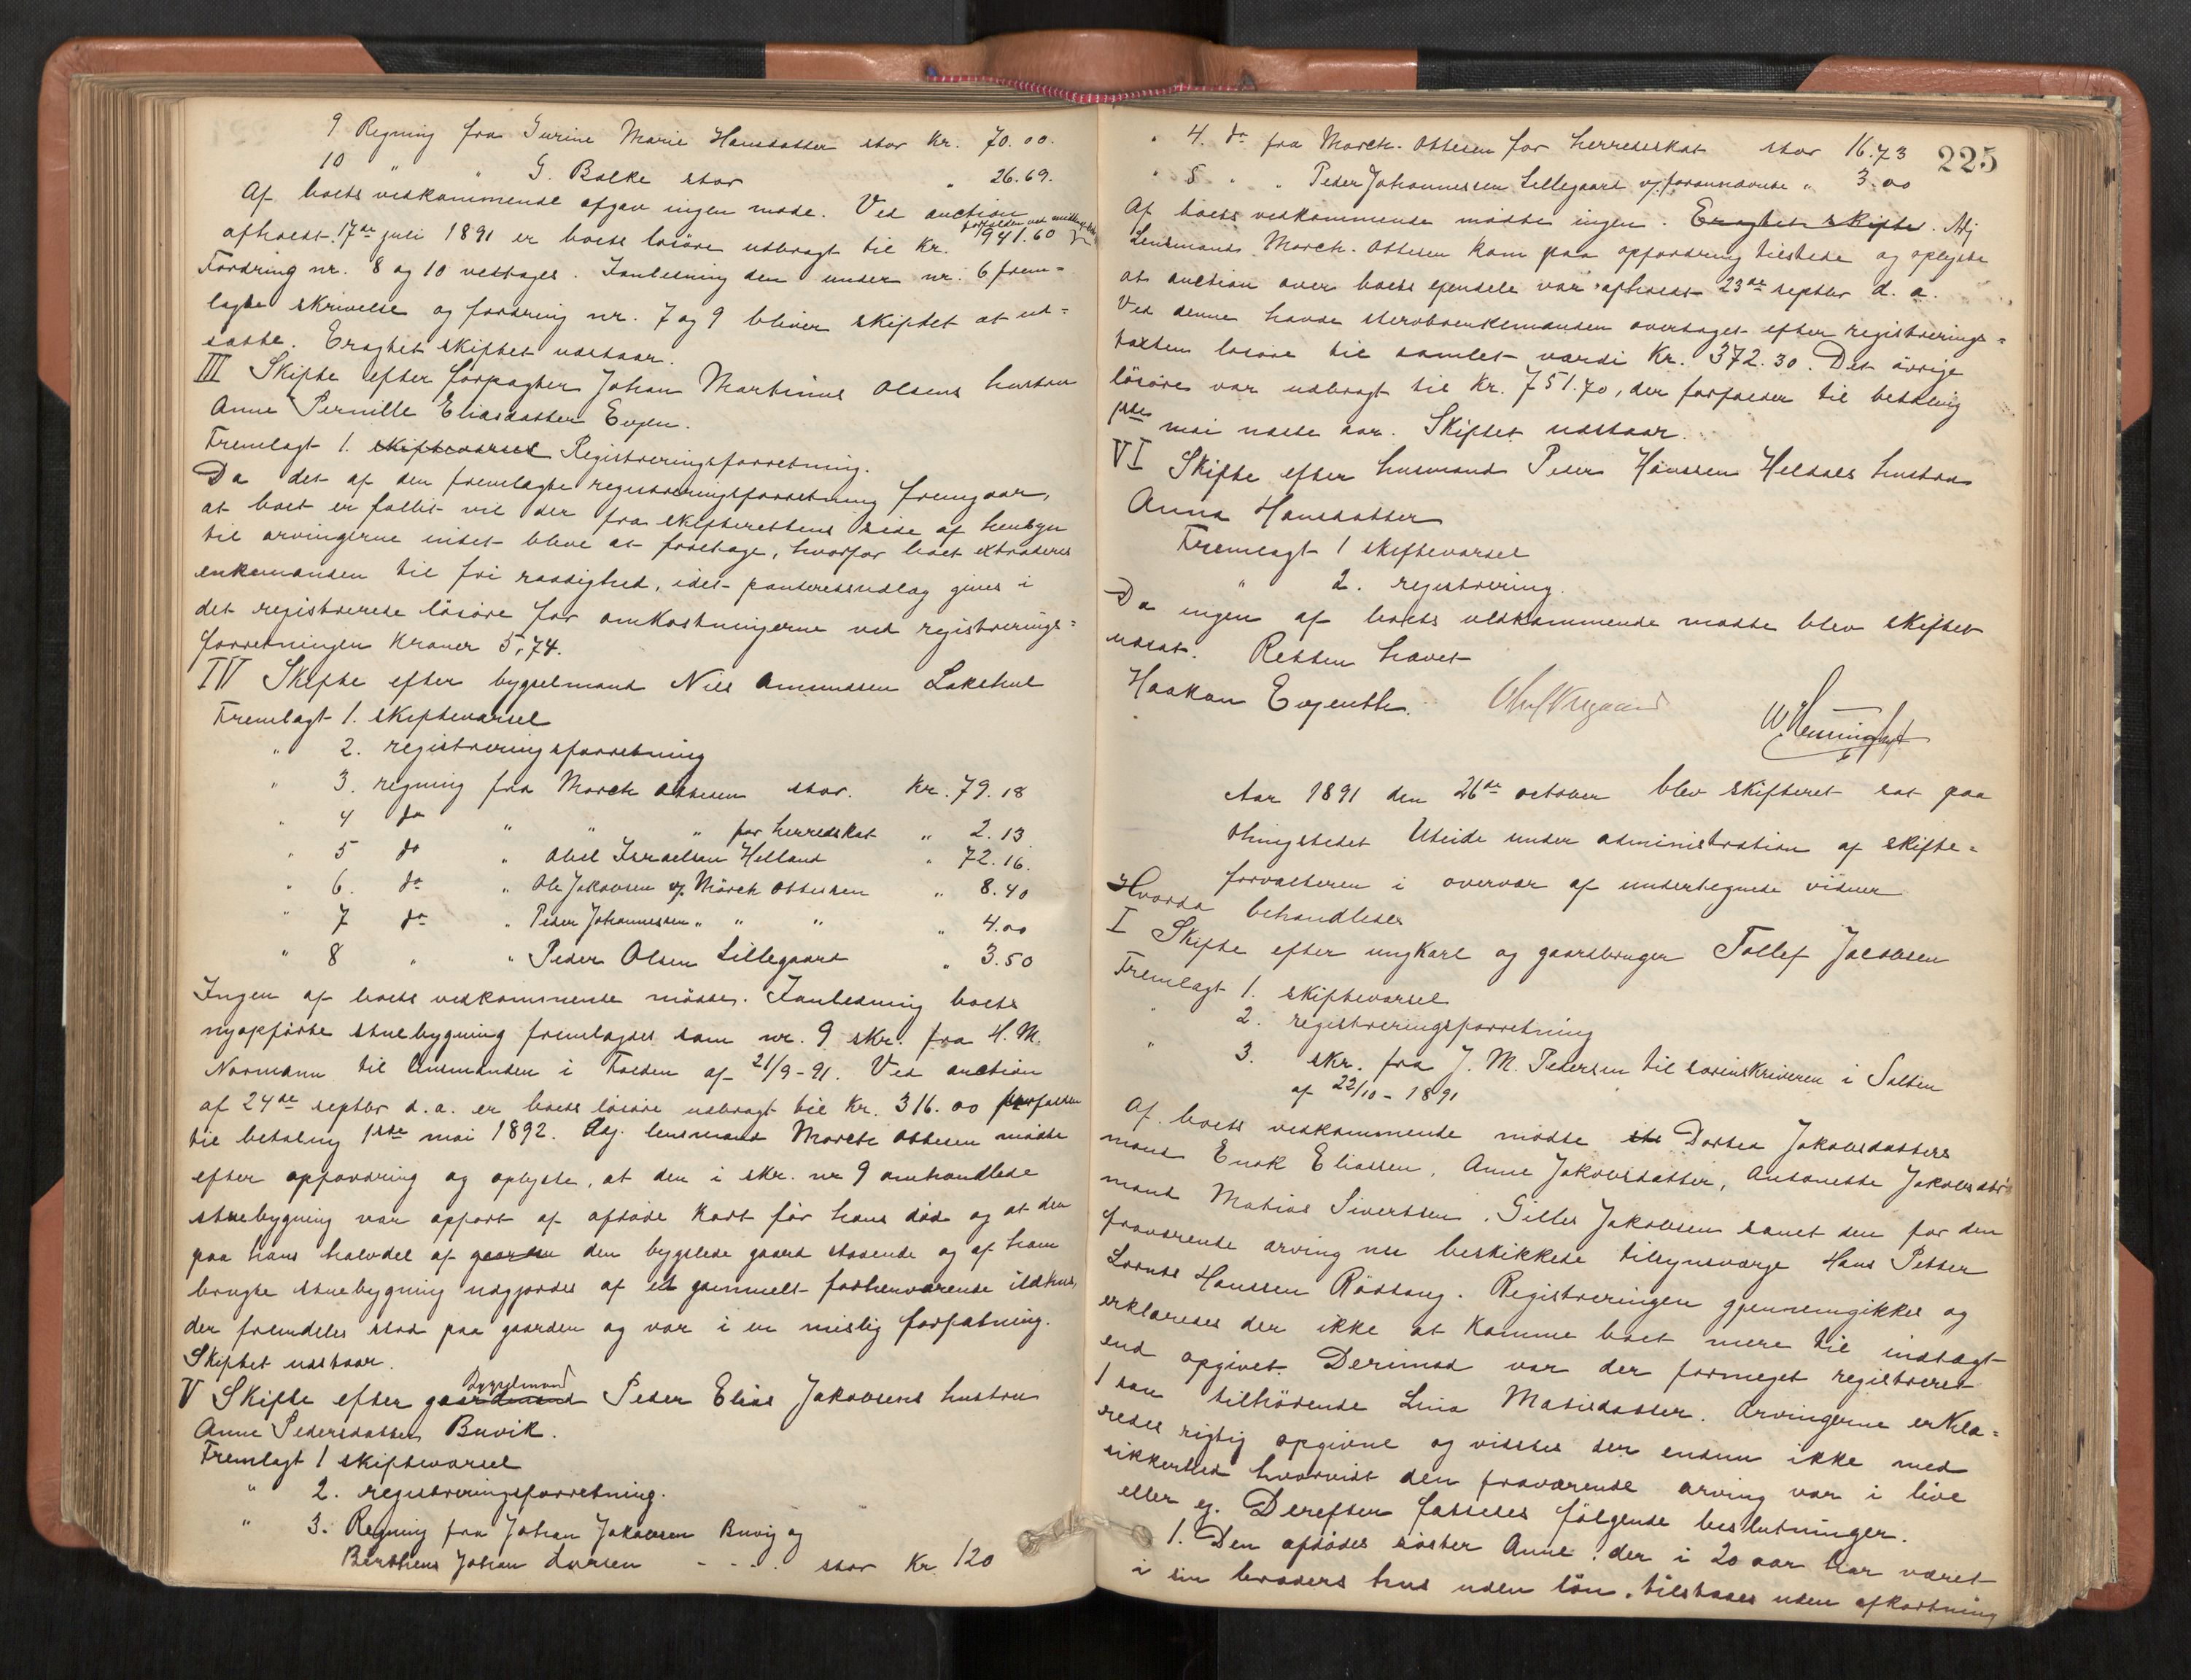 9 Regning fra Gurine Marie Hansdatter stor Kr. 70.00.
10 " " G. Bolke stor " 26.69.
Af boets vedkommende afgav ingen møde. Ved auction
afholdt 17de juli 1891 er boets løsøre udbragt til Kr. 941.60
Fordring nr. 8 og 10 vedtages. I anledning den under nr. 6 frem=
lagte skrivelse og fordring nr. 7 og 9 bliver skiftet at ud=
sætte. Eragtet skiftet udstaar.
III Skifte efter forpagter Johan Martinus Olsens hustru
Anne Pernille Eliasdatter Evjen.
Fremlagt 1. skiftevarsel Registreringsforretning.
Da det af den fremlagte registreringsforretning fremgaar,
at boet er fallit vil der fra skifterettens side af hensyn
til arvingerne intet blive at foretage, hvorfor boet extraderes
enkemanden til fri raadighed, idet panteretsudlæg gives i
det registrerede løsøre for omkostningerne ved registrerings=
forretningen Kroner 5,74.
IV Skifte efter bygselmand Nils Amundsen Lakshul
Fremlagt 1. skiftevarsel
" 2. registreringsforretning
" 3. regning fra Morch Ottesen stor. Kr. 79.18
" 4 do " " " for herredskat " 2.13
" 5 do " Abel Israelsen Helland " 72.16
" 6. do " Ole Jakobsen v/ Mörch Ottesen " 8.40
" 7 do " Peder Johannessen " " " " 4.00
" 8 " " Peder Olsen Lillegaard " 3.50
Ingen af boets vedkommende mødte. I anledning boets
nyopførte stuebygning fremlagdes som nr. 9 skr. fra H. M.
Normann til lensmanden i Folden af 21/9-91. Ved auction
af 24de septbr d.a. er boets løsøre udbragt til Kr. 316.00 forfalden
til betaling 1ste mai 1892. Adj. lensmand Morch Ottesen mødte
efter opfordring og oplyste, at den i skr. nr 9 omhandlede
stuebygning var opført af afdøde kort før hans død og at den
paa hans halvdel af gaarden den bygslede gaard staaende og af ham
brugte stuebygning udgjordes af et gammelt forhenværende ildhus,
der fremdeles stod paa gaarden og var i en mislig forfatning.
Skiftet udstaar.
Bygselmand
V Skifte efter gaardmand Peder Elias Jakobsens hustru
Anne Pedersdatter Buvik.
Fremlagt 1 skiftevarsel
" 2. registreringsforretning.
" 3. Regning fra Johan Jakobsen Buvig og
Berthens Johan Larsen - - - . stor Kr. 120
225
" 4. do fra Morch-Ottesen for herredsskat stor 16.73
" 5 " " Peder Johannessen Lillegaard v/ forannævnte " 3.00
Af boets vedkommende mødte ingen. Eragtet skifte. Adj
Lensmand Morch-Ottesen kom paa opfordring tilstede og oplyste
at auction over boets eiendele var afholdt 23de septbr d.a.
Ved denne havde sterboenkemanden overtaget efter registrerings=
taxten løsøre til samlet værdi Kr. 372.30. Det øvrige
løsøre var udbragt til Kr. 751.70, der forfalder til betaling
1ste mai næste aar. Skiftet udstaar.
VI Skifte efter husmand Peder Hanssen Heldals hustru
Anna Hansdatter
Fremlagt 1 skiftevarsel
" 2. registrering.
Da ingen af boets vedkommende mødte blev skiftet
udsat. Retten hævet
Haakon Evjenth.
Aar 1891 den 26de october blev skifteret sat paa
thingstedet Uteide under administration af skifte=
forvalteren i overvær af undertegnede vidner
Hvorda behandledes
I Skifte efter ungkarl og gaardbruger Tollef Jacobsen
Fremlagt 1. skiftevarsel
" 2. registreringsforretning
" 3. skr. fra J. M. Pedersen til sorenskriveren i Salten
af 22/10-1891
Af boets vedkommende mødte Dortea Jakobsdatters
mand Enok Eliassen, Anne Jakobsdatter, Antonette Jakobsdtrs
mand Matias Sivertsen, Gilles Jakobsen samt den for den
fraværende arving nu beskikkede tilsynsværge Hans Petter
Lornts Hanssen Rödtang. Registreringen gjennemgikkes og
erklæredes der ikke at komme boet mere til indtægt
end opgivet. Derimod var der formeget registreret
1 sau tilhørende Lina Matisdatter. Arvingerne erklæ=
redes rigtig opgivne og vidstes der endnu ikke med
sikkerhed hvorvidt den fraværende arving var i live
eller ej. Derefter fattedes følgende beslutninger.
1. Den afdødes søster Anne, der i 20 aar har været
i sin broders hus uden løn, tilstaaes uden afkortning